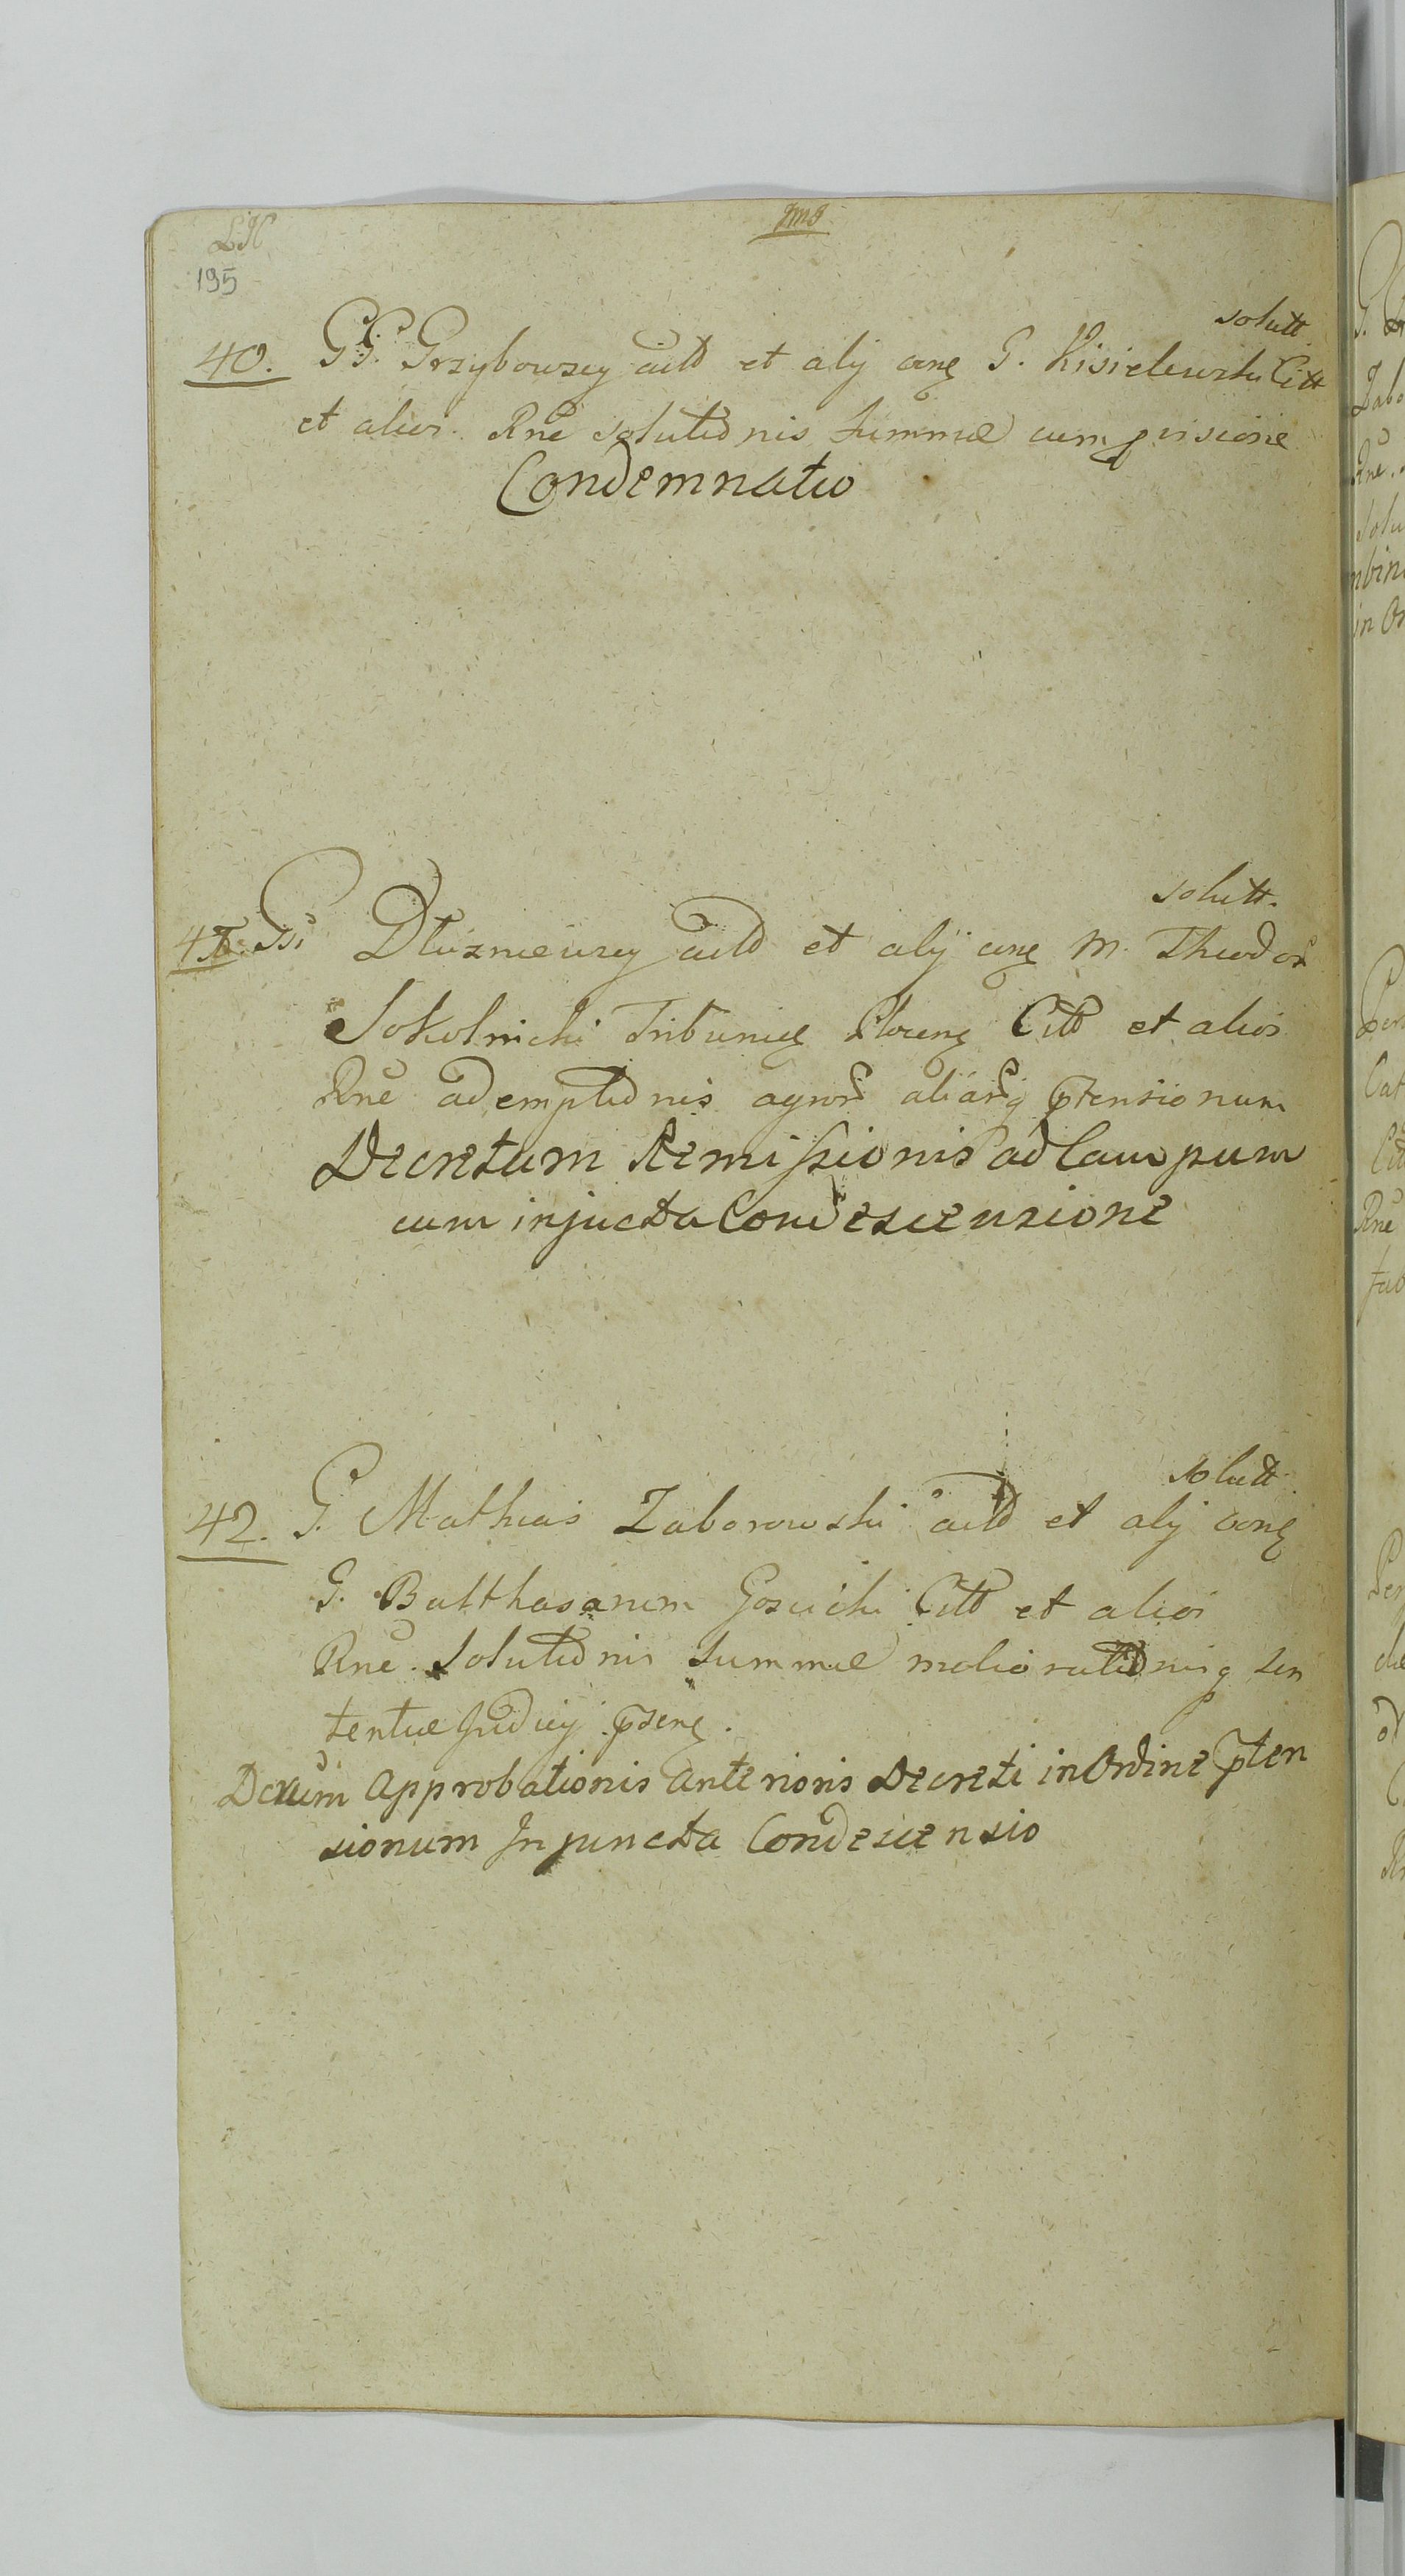 195
solutt.
40. GG. Grzybowscy actd et alij cong G. Kisielewski Citt
et alios. Rne solutionis summae cum provisione
Condemnatio
solutt.
41. Dłuzniewscy actd et alij cong M. Theodor
Sokolnicki Tribunig Ploceng Citt et alios
Rne ademptionis agror aliarq ptensionum
Decretum Remissionis ad Campum
cum injucta Condescensione
solutt.
42. G. Mathias Zaborowski actd et alij cong
G. Balthasarem Goscicki Citt et alios
Rne. solutionis summae meliorationisq sen
tentiae Judicij pseng.
Dcrtum Approbationis Anterioris Decreti in Ordine pten
sionum Injuncta Condescensio